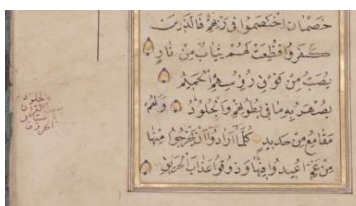 خَصْمَانِ اخْتَصَمُوا فِي رَبِّهِمْ فَالَّذِينَ
كَفَرُوا قُطِّعَتْ لَهُمْ ثِيَابٌ مِنْ نَارٍ
يُصَبُّ مِنْ فَوْقِ رُءُوسِهِمُ الْحَمِيمُ
يُصْهَرُ بِهِ مَا فِي بُطُونِهِمْ وَالْجُلُودُ وَلَهُمْ
مَقَامِعُ مِنْ حَدِيدٍ كُلَّمَا أَرَادُوا أَنْ يَخْرُجُوا مِنْهَا
مِنْ غَمٍّ أُعِيدُوا فِيهَا وَذُوقُوا عَذَابَ الْحَرِيقِ